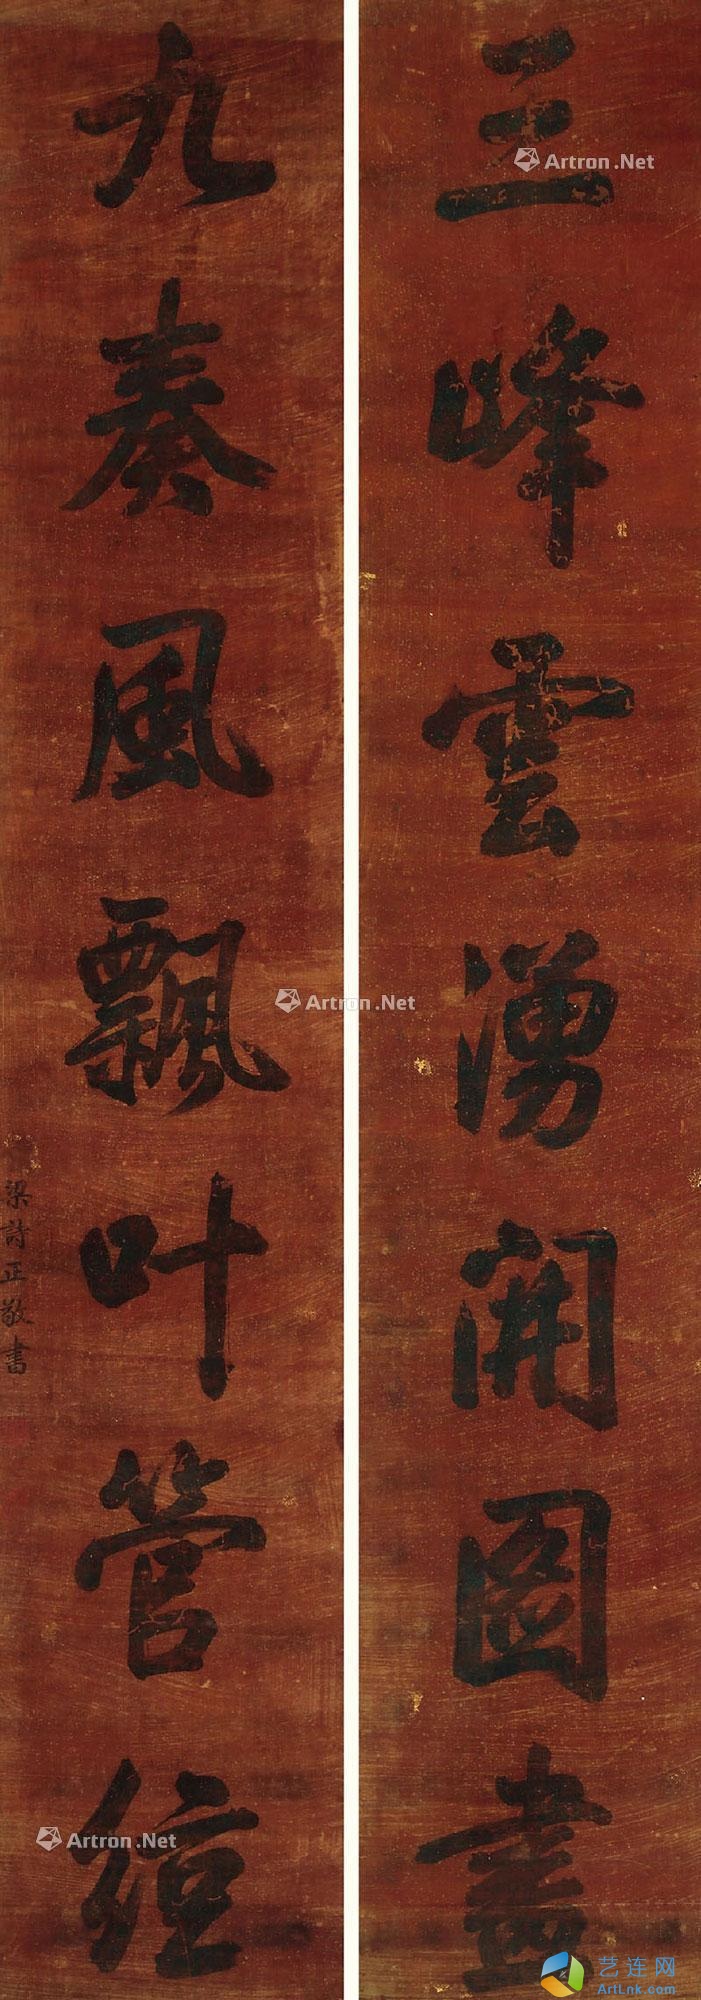 三峰雲湧開圖畫
九奏風飄叶管絙
梁詩正敬書
Artron.Net
Artron.Net
Artron.Net
艺连网
ArtLnk.com